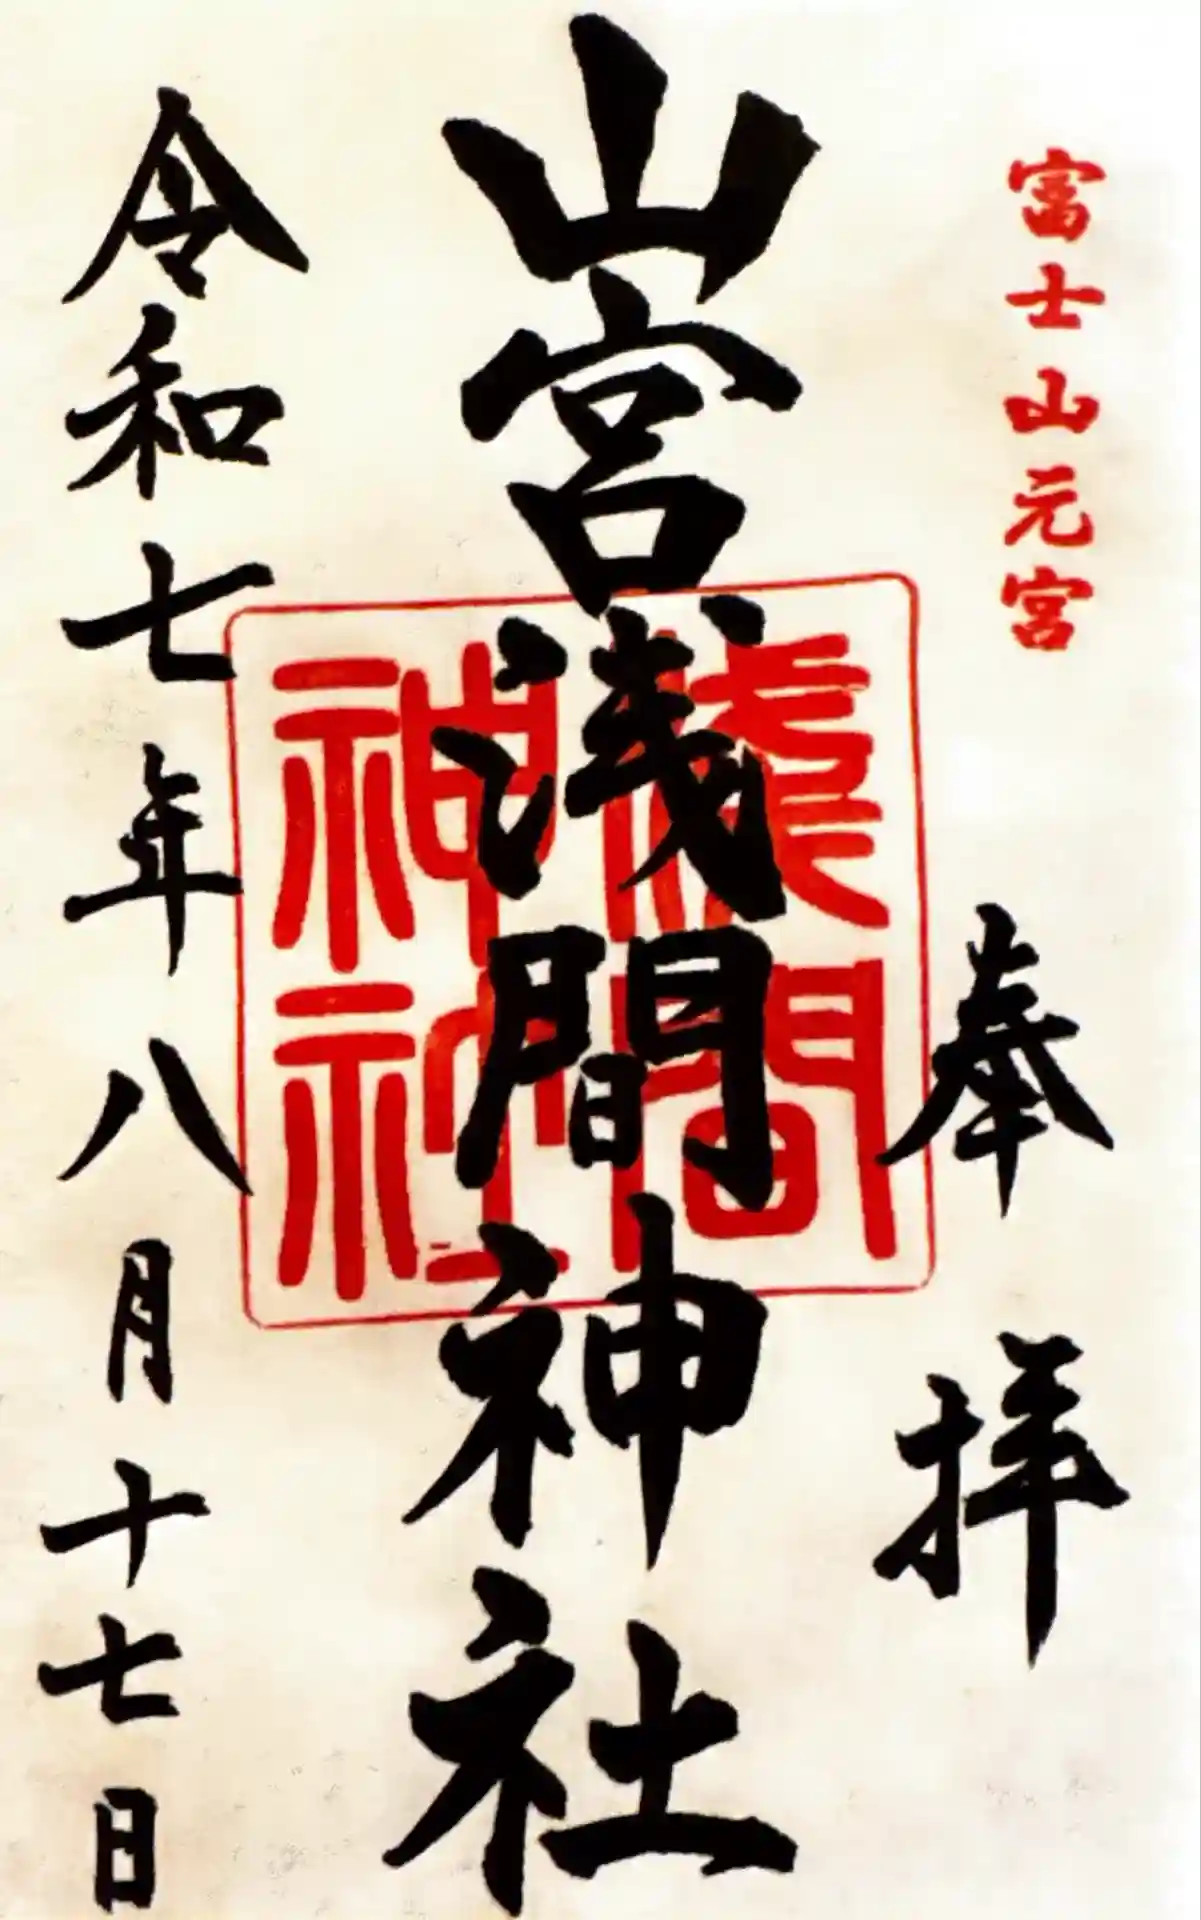 富士山元宮
奉拝
山宮浅間神社
淺間
神社
令和七年八月十七日